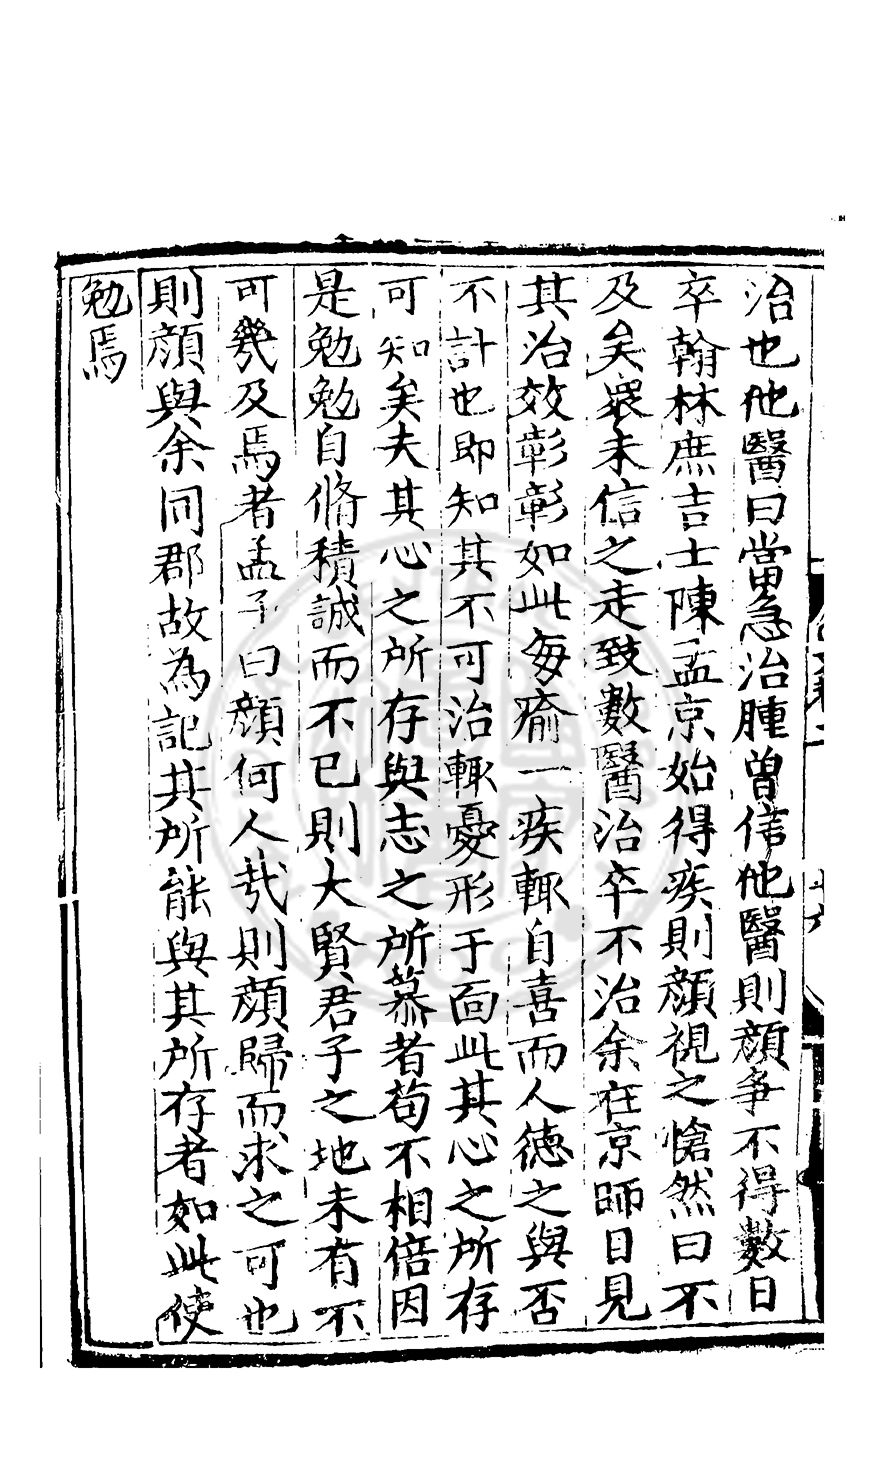 治也他醫曰當急治腫曽信他醫則顔爭不得數日
卒翰林庶吉士陳孟京始得疾則顔視之愴然曰不
及矣衆未信之走致數醫治卒不治余在京師目見
其治效彰彰如此每瘉一疾輙自喜而人德之與否
不計也即知其不可治輙憂形于面此其心之所存
可知矣夫其心之所存與志之所慕者苟不相倍因
是勉勉自脩積誠而不已則大賢君子之地未有不
可㡬及焉者孟子曰顔何人㢤則顔歸而求之可也
則顔與余同郡故為記其所能與其所存者如此使
勉焉